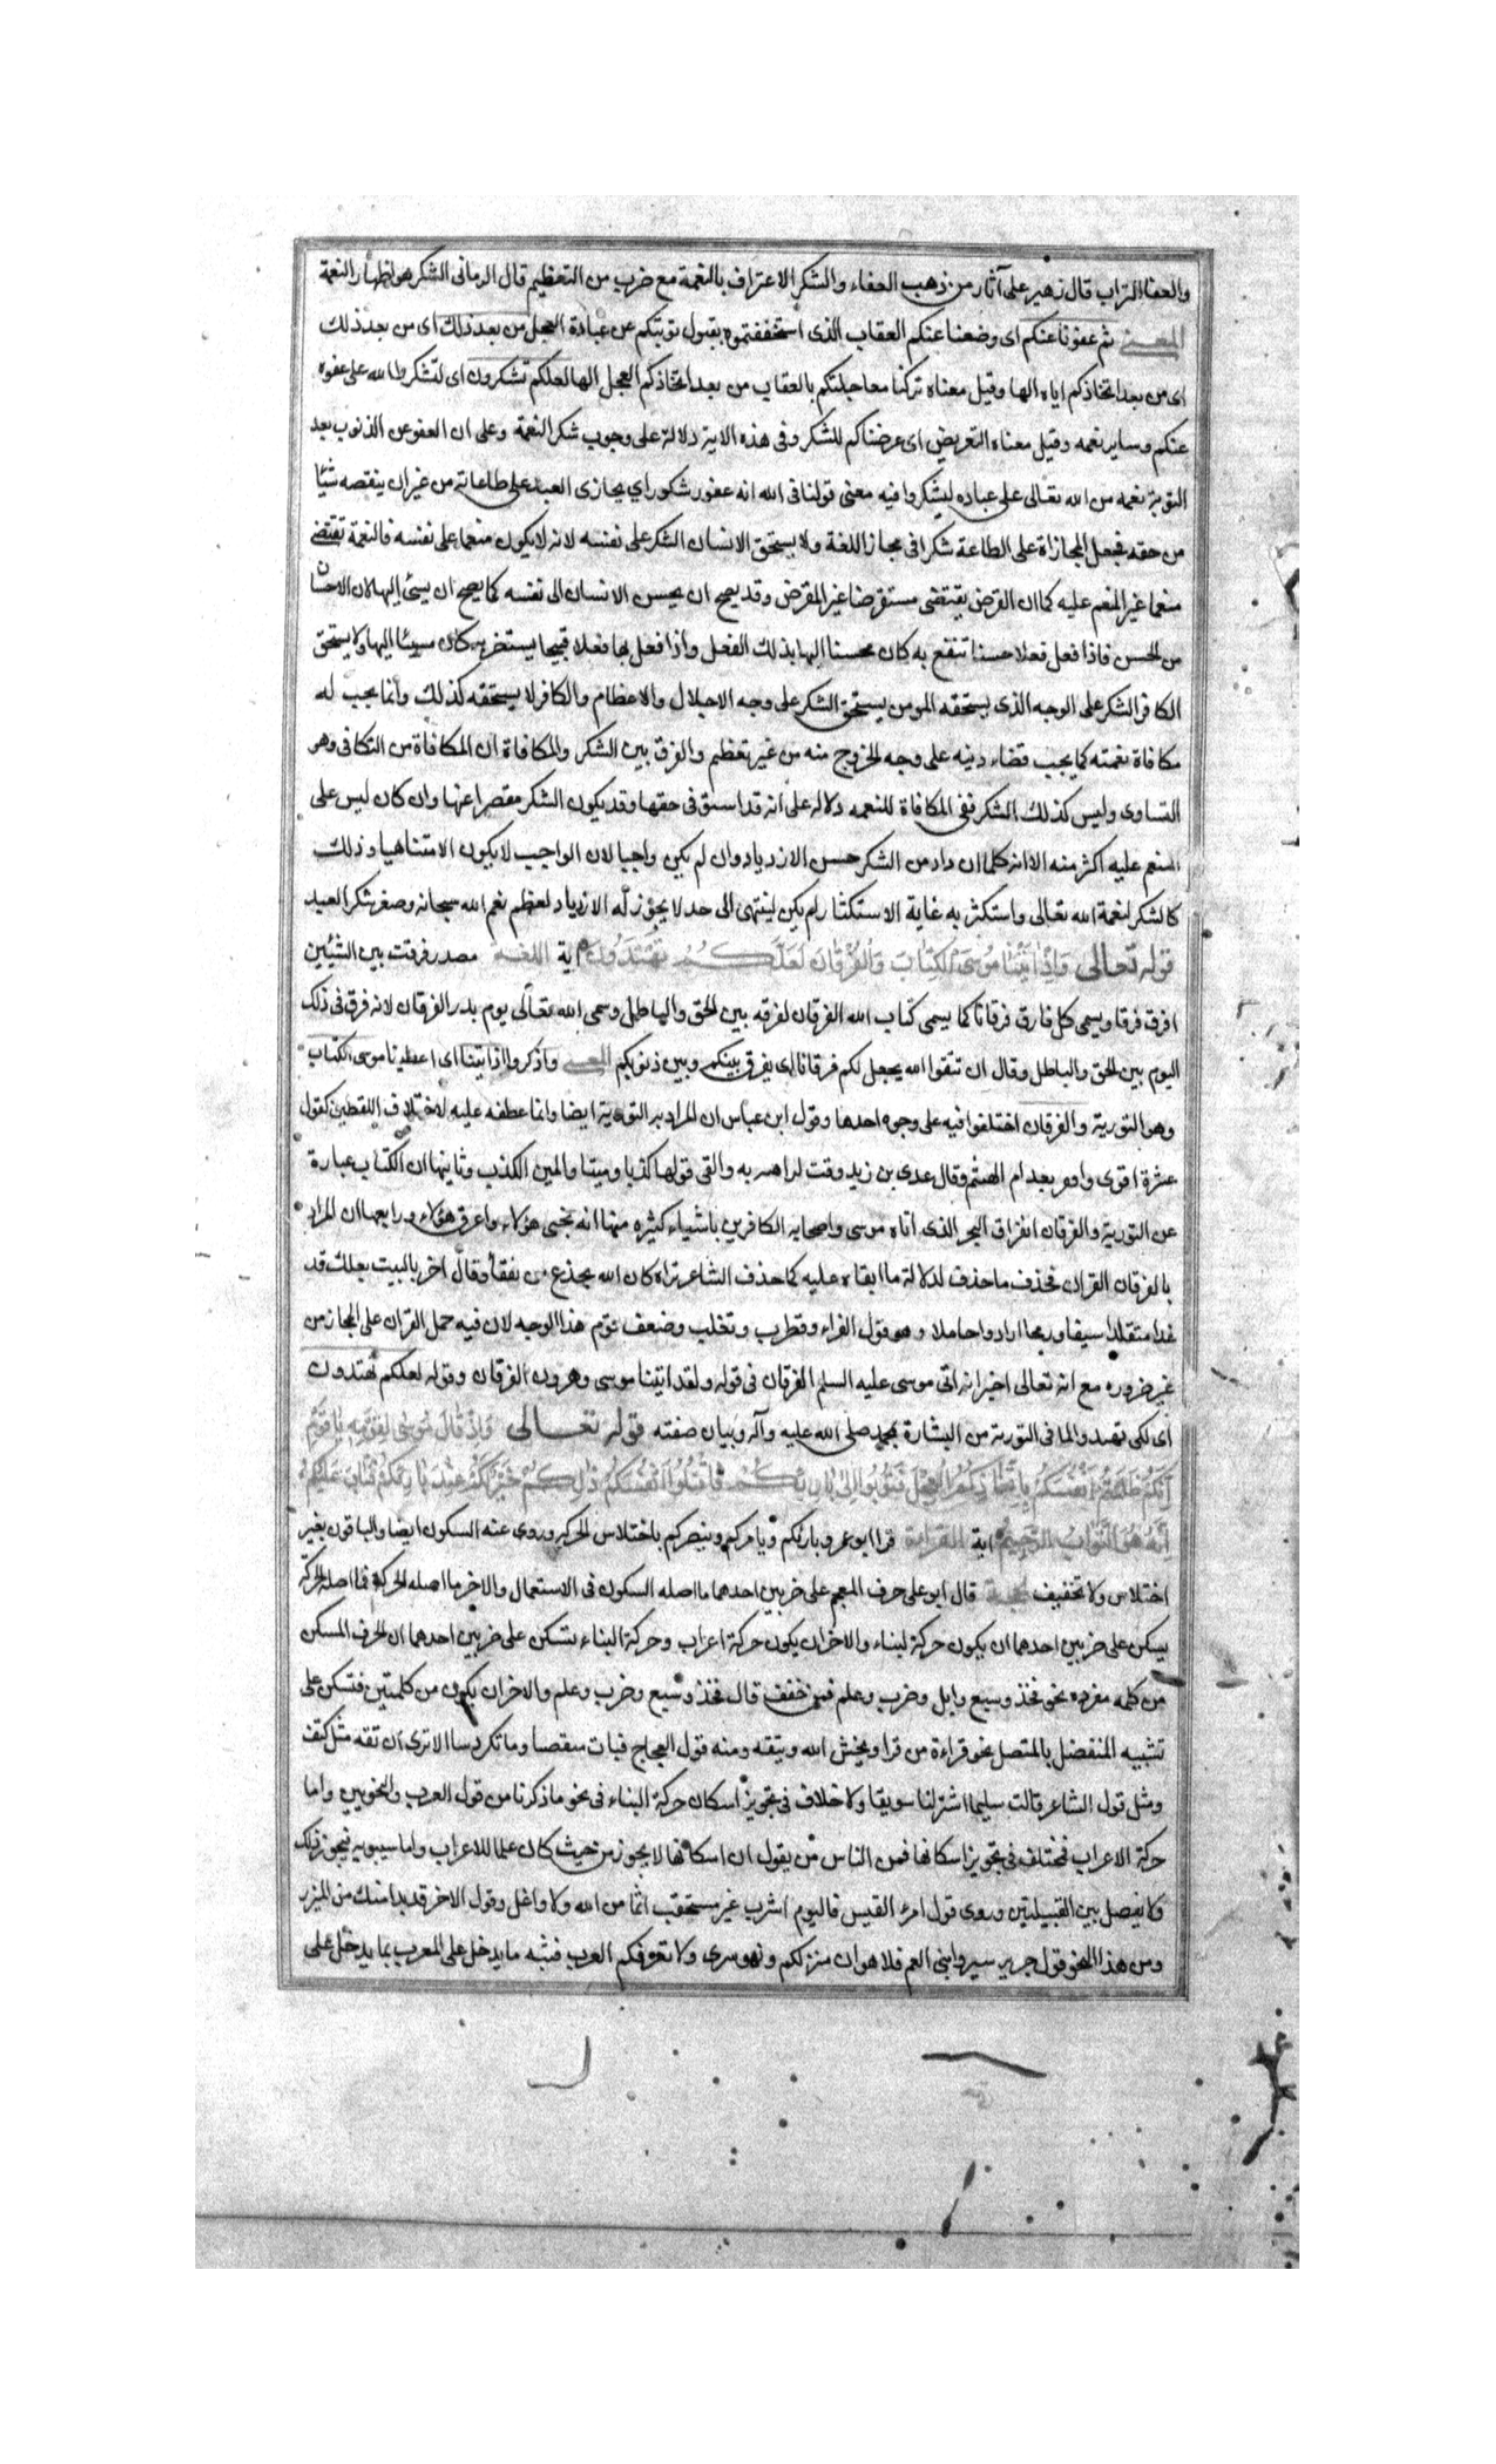 والعفا التراب قال زهير على آثار من ذهب العفاء والشكر الاعتراف بالنعمة مع ضرب من التعظيم قال الرمانى الشكر هو اظهار النعمة
المعنى ثم عفونا عنكم اى وضعنا عنكم العقاب الذى استحققتموه بقبول توبتكم عن عبادة العجل من بعد ذلك اى من بعد ذلك
اى من بعد اتخاذكم اياه الها وقيل معناه تركنا معاجلتكم بالعقاب من بعد اتخاذكم العجل الها لعلكم تشكرون اى لتشكروا الله على عفوه
عنكم وساير نعمه وقيل معناه التعريض اى عرضناكم للشكر وفى هذه الاية دلالة على وجوب شكر النعمة وعلى ان العفو عن الذنوب بعد
التوبة نعمه من الله تعالى على عباده ليشكروا فيه معنى قولنا فى الله انه غفور شكور اي يجازى العبد على طاعاته من غير ان ينقصه شيئا
من حقه فجعل المجازاة على الطاعة شكرا فى مجاز اللغة ولا يستحق الانسان الشكر على نفسه لانه لا يكون منعما على نفسه فالنعمة تقتضى
منعما غير المنعم عليه كما ان القرض يقتضى مستقرضا غير المقرض وقد يصح ان يحسن الانسان الى نفسه كما يصح ان يسئ اليها لان الاحسان
من الحسن فاذا فعل فعلا حسنا تنفع به كان محسنا اليها بذلك الفعل واذا فعل بها فعلا قبيحا يستضر به كان مسيئا اليها ولا يستحق
الكافر الشكر على الوجه الذى يستحقه المومن يستحق الشكر على وجه الاجلال والاعظام والكافر لا يستحقه كذلك وانما يجب له
مكافاة نعمته كما يجب قضاء دينه على وجه الخروج منه من غير تعظيم والفرق بين الشكر والمكافاة ان المكافاة من التكافى وهو
التساوى وليس كذلك الشكر ففى المكافاة للنعمه دلاله على انه قد استوفى حقها وقد يكون الشكر مقصرا عنها وان كان ليس على
المنعم عليه اكثر منه الا انه كلما ازداد من الشكر حسن الازدياد وان لم يكن واجبا لان الواجب لا يكون الا متناهيا وذلك
كالشكر لنعمة الله تعالى واستكثر به غاية الاستكثار لم يكن لينتهى الى حد لا يجوز له الازدياد لعظم نعم الله سبحانه وصغر شكر العبد
قوله تعالى وَاِذْ اٰتَيْنَا مُوسَى الْكِتَابَ وَالْفُرْقَانَ لَعَلَّكُمْ تَهْتَدُونَ اية اللغة مصدر فرقت بين الشيئين
افرق فرقا ويسمى كل فارق فرقانا كما يسمى كتاب الله الفرقان لفرقه بين الحق والباطل وسمى الله تعالى يوم بدر الفرقان لانه فرق فى ذلك
اليوم بين الحق والباطل وقال ان تتقوا الله يجعل لكم فرقانا اى يفرق بينكم وبين ذنوبكم المعنى واذكروا اذ اتينا اى اعطينا موسى الكتاب
وهو التورية والفرقان اختلفوا فيه على وجوه احدها وقول ابن عباس ان المراد به التورية ايضا وانما عطفه عليه لاختلاف اللفظين كقول
عنترة اقوى واقفر بعد ام الهيثم وقال عدى بن زيد وقدت لراهسه والفى قولها كذبا ومينا والمين الكذب وثانيها ان الكتاب عبارة
عن التورية والفرقان انفراق البحر الذى اتاه موسى واصحابه الكافرين باشياء كثيره منها انه نجى هؤلاء واغرق هؤلاء ورابعها ان المراد
بالفرقان القران فحذف ما حذف لدلالة ما ابقاه عليه كما حذف الشاعر تراه كان الله يجدع وقال اخر ياليت بعلك قد
غدا متقلدا سيفا ورمحا اراد وحاملا وهو قول الفراء وقطرب وتغلب وضعف قوم هذا الوجه لان فيه حمل القران على المجاز من
غير ضروره مع انه تعالى اخبر انه اتى موسى عليه السلم الفرقان فى قوله ولقد اتينا موسى وهرون الفرقان وقوله لعلكم تهتدون
اى لكى تهتدوا لما فى التورية من البشارة بمحمد صلى الله عليه وآله وبيان صفته قوله تعالى وَاِذْ قَالَ مُوسٰى لِقَوْمِهِ يَا قَوْمِ
اِنَّكُمْ ظَلَمْتُمْ اَنْفُسَكُمْ بِاتِّخَاذِكُمُ الْعِجْلَ فَتُوبُوا اِلٰى بَارِئِكُمْ فَاقْتُلُوا اَنْفُسَكُمْ ذٰلِكُمْ خَيْرٌ لَكُمْ عِنْدَ بَارِئِكُمْ فَتَابَ عَلَيْكُمْ
اِنَّهُ هُوَ التَّوَّابُ الرَّحِيمُ اية القراءة قرا ابو عمرو بارئكم ويامركم وينصركم باختلاس الحركه وروى عنه السكون ايضا والباقون بغير
اختلاس ولا تخفيف الحجة قال ابو على حرف المعجم على ضربين احدهما ما اصله السكون فى الاستعمال والاخر ما اصله الحركة فما اصله الحركة
يسكن على ضربين احدهما ان يكون حركة لبناء والاخر ان يكون حركة اعراب وحركة البناء تسكن على ضربين احدهما ان الحرف المسكن
من كلمه مفرده نحو فخذ وسبع وابل وضرب وعلم فمن خفف قال فخذ وسبع وضرب وعلم والاخر ان يكون من كلمتين فتسكن على
تشبيه المنفصل بالمتصل نحو قراءة من قرا ويخش الله ويتقه ومنه قول العجاج فبات منتصبا وما تكردسا الا ترى ان تقه مثل كتف
ومثل قول الشاعر قالت سليما اشتر لنا سويقا ولا خلاف فى تجويز اسكان حركة البناء فى نحو ما ذكرنا من قول العرب والنحويين واما
حركة الاعراب فمختلف فى تجويز اسكانها فمن الناس من يقول ان اسكانها لا يجوز من حيث كان علما للاعراب واما سيبويه فيجوز ذلك
ولا يفصل بين القبيلتين وروى قول امرئ القيس فاليوم اشرب غير مستحقب اثما من الله ولا واغل وقول الاخر قد بدا هنك من الميزر
ومن هذا النحو قول جرير سيروا بنى العم فلاهوان منزلكم ونهر تيرى ولا تعرفكم العرب فشبه ما يدخل على المعرب بما يدخل على